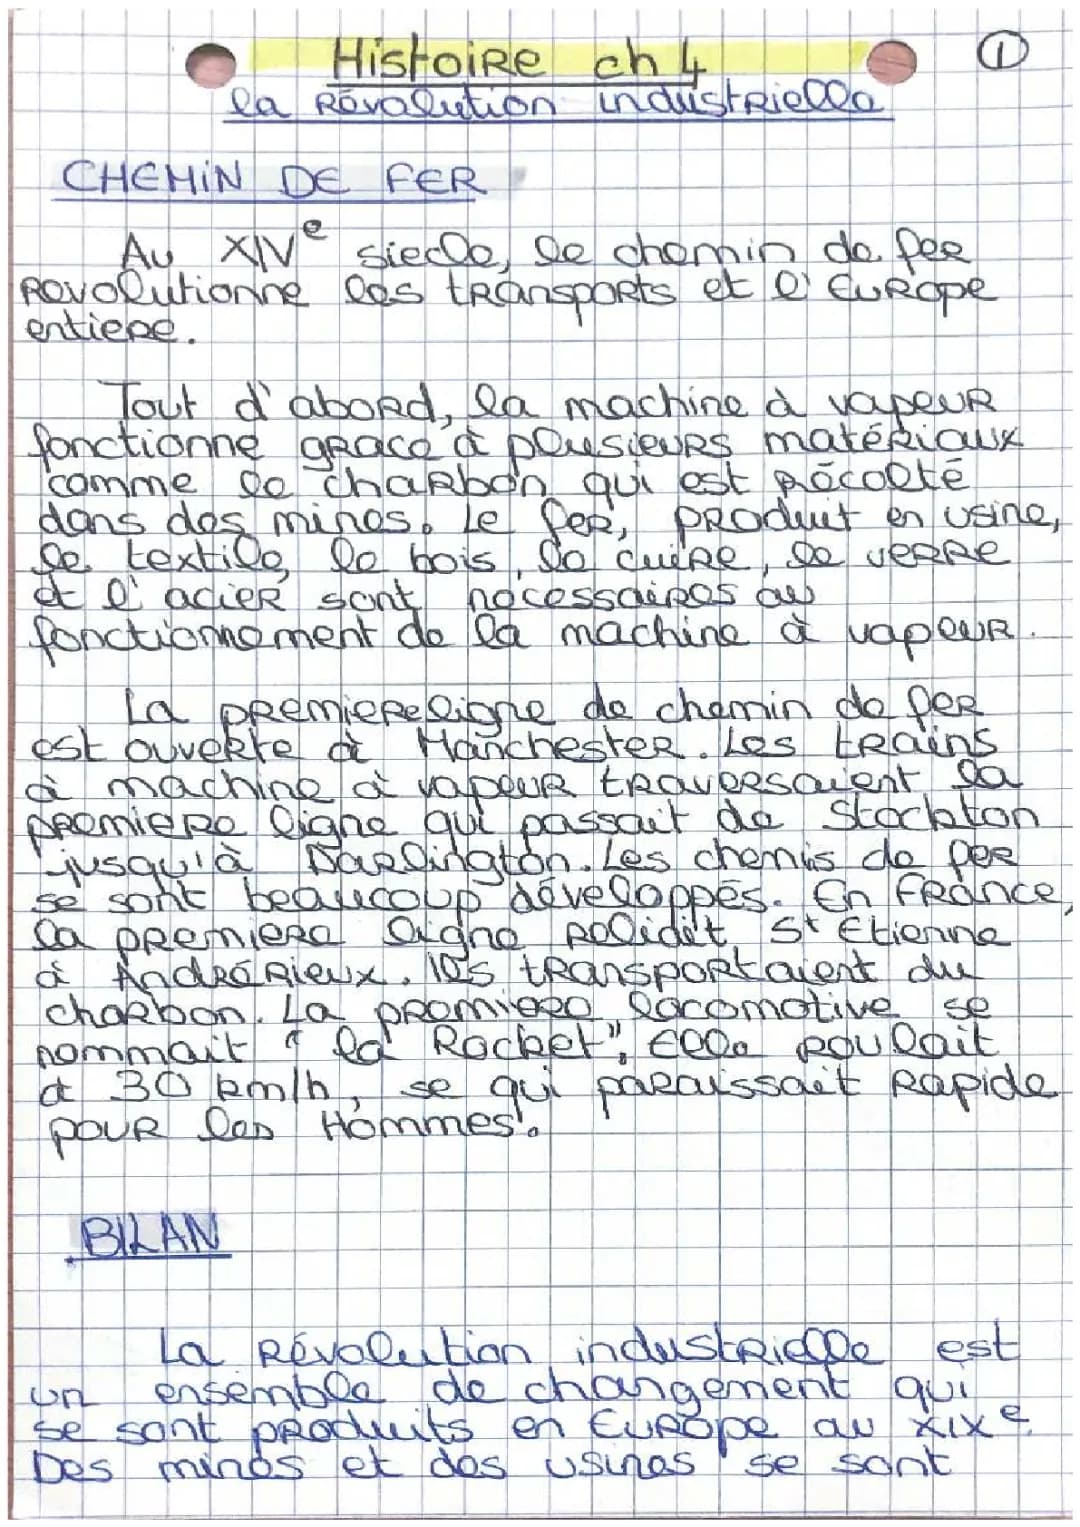 Histoire ch 4
①
la Révolution industrielle
CHEMIN DE FER
Au XIVe siecle, le chemin de fer
Revolutionne les transports et l'Europe
entiere.
Tout d'abord, la machine à vapeur
fonctionne grace à plusieurs matériaux
comme le charbon qui est récolté
dans des mines. Le fer, produit en usine,
le textile, le bois, le cuire, le verre
et l'acier sont necessaires au
fonctionnement de la machine à vapeur.
La premiere ligne de chemin de fer
est ouverte à Manchester. Les trains
à machine à vapeur traversaient la
premiere ligne qui passait de Stockton
jusqu'à Darlington. Les chemis de fer
se sont beaucoup développés. En France,
la premiere ligne relidit St Etienne
à Andrérieux. Ils transportaient du
charbon. La premiere locomotive se
nommait "la Rocket", Elle roulait
à 30 km/h, se qui paraissait Rapide
pour les Hommes.
BILAN
La Révolution industrielle est
un ensemble de changement qui
se sont produits en Europe au XIXe.
Des mines et des usines se sont